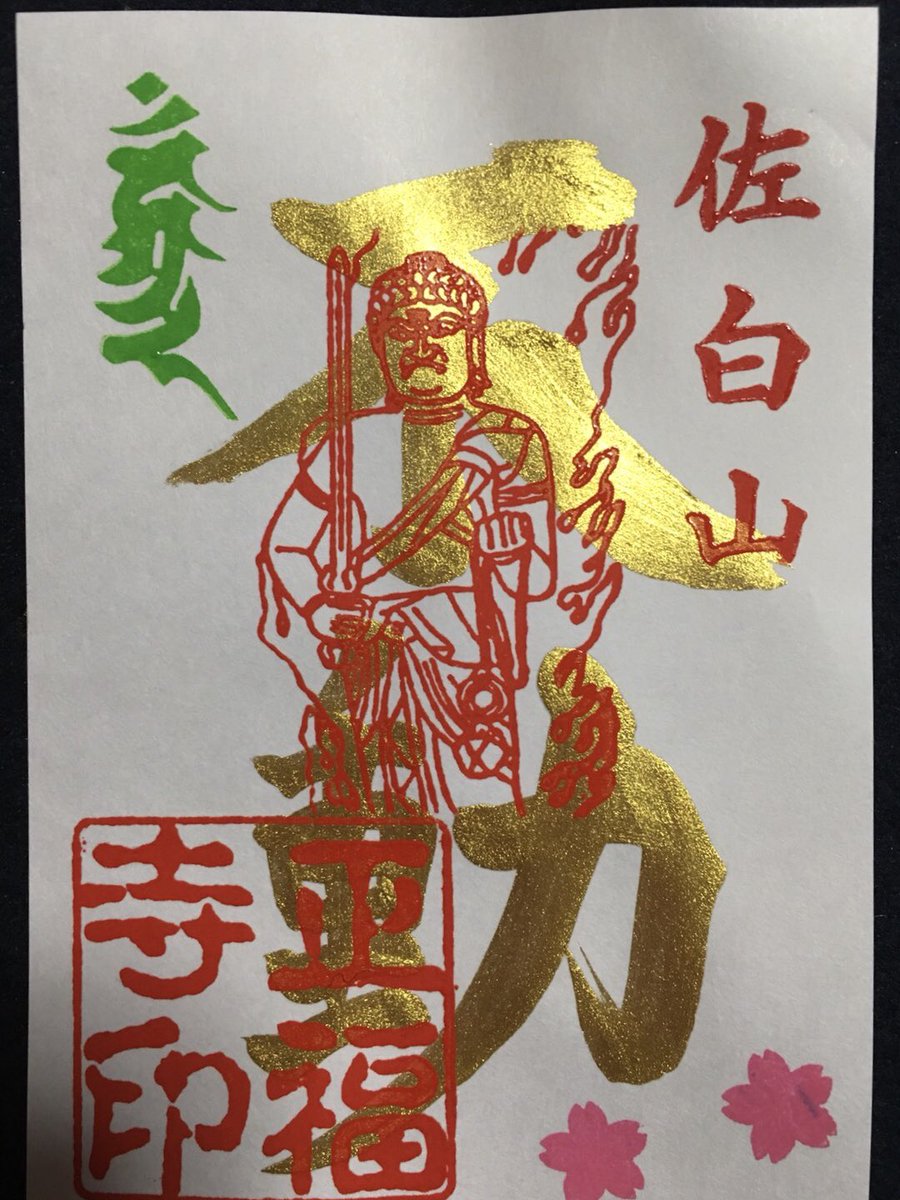 佐白山
不動
正福
寺印